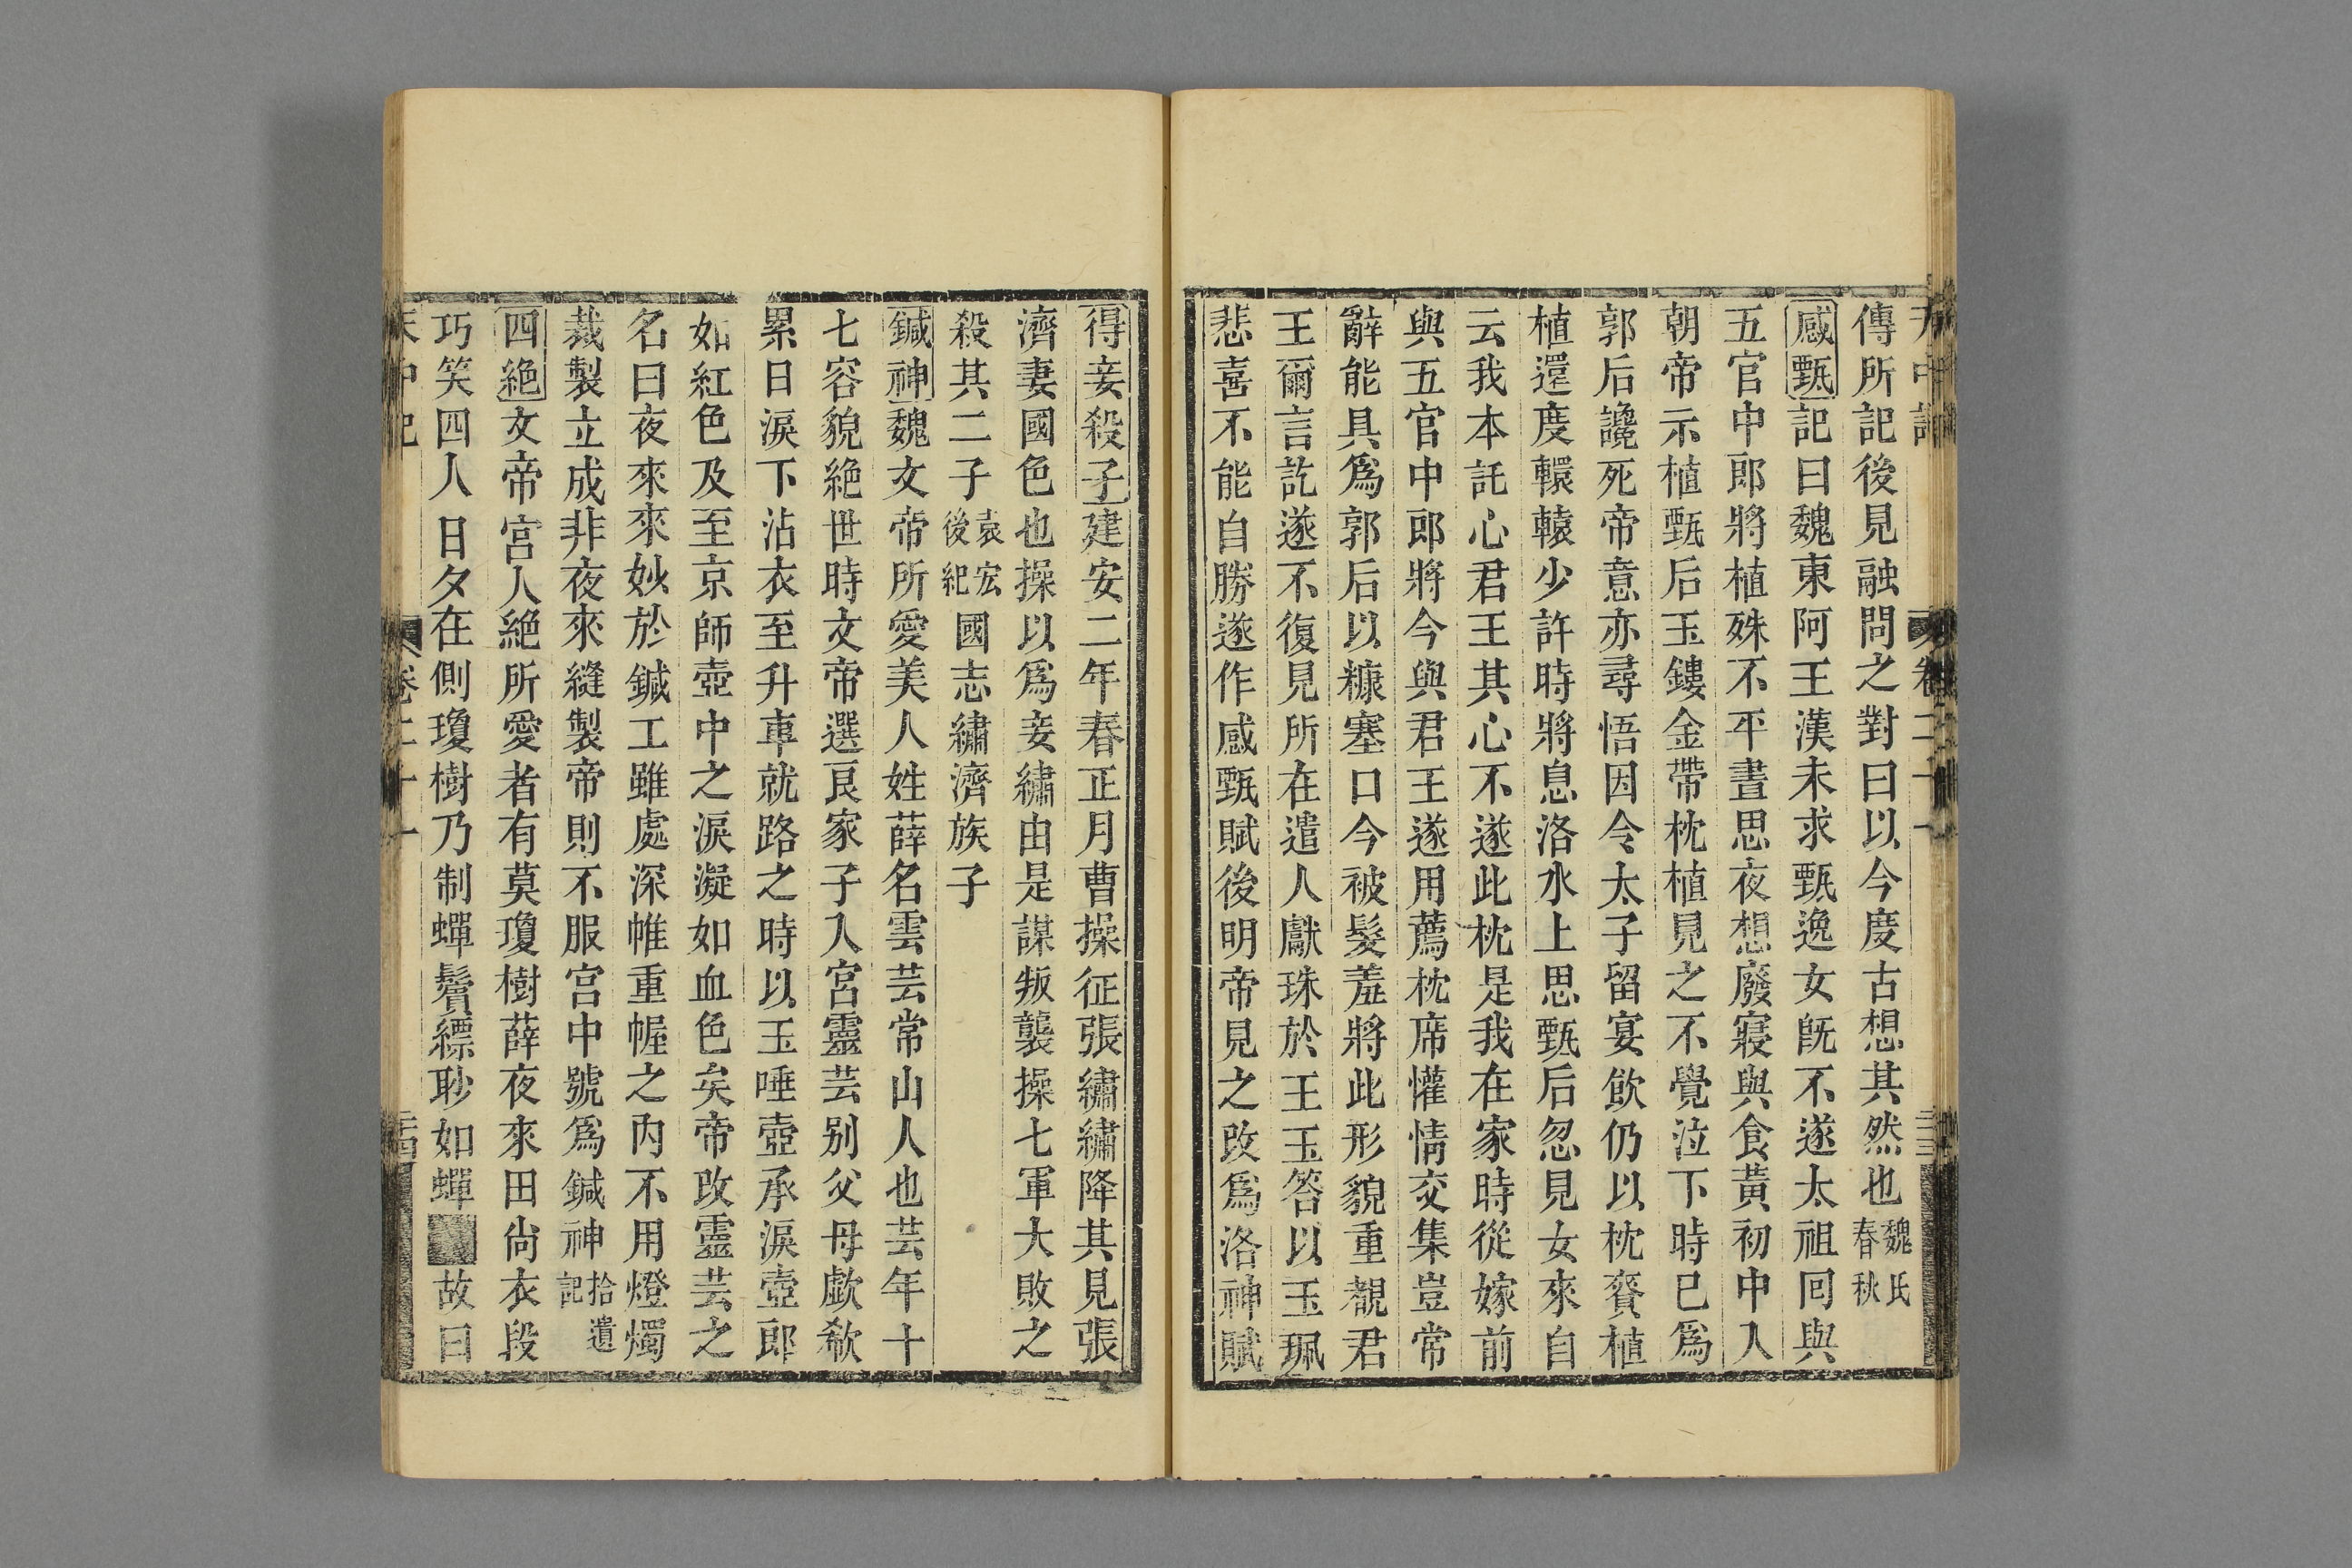 傳所記後見融問之對曰以今度古想其然也魏氏春秋
感甄記曰魏東阿王漢末求甄逸女旣不遂太祖回與
五官中郎將植殊不平晝思夜想廢寢與食黃初中入
朝帝示植甄后玉鏤金帶枕植見之不覺泣下時已爲
郭后讒死帝意亦尋悟因令太子留宴飮仍以枕賚植
植還度轘轅少許時將息洛水上思甄后忽見女來自
云我本託心君王其心不遂此枕是我在家時從嫁前
與五官中郎將今與君王遂用薦枕席懽情交集豈常
辭能具爲郭后以糠塞口今被髮羞將此形貌重覩君
王爾言訖遂不復見所在遣人獻珠於王玉答以玉珮
悲喜不能自勝遂作感甄賦後明帝見之改爲洛神賦
得妾殺子建安二年春正月曹操征張繡繡降其見張
濟妻國色也操以爲妾繡由是謀叛襲操七軍大敗之
殺其二子袁宏後紀國志繡濟族子
鍼神魏文帝所愛美人姓薛名雲芸常山人也芸年十
七容貌絶世時文帝選良家子入宮靈芸别父母歔欷
累日淚下沾衣至升車就路之時以玉唾壺承淚壺郎
如紅色及至京師壺中之淚凝如血色矣帝改靈芸之
名曰夜來來妙於鍼工雖處深帷重幄之內不用燈燭
裁製立成非夜來縫製帝則不服宮中號爲鍼神拾遺記
四絶文帝宮人絶所愛者有莫瓊樹薛夜來田尙衣段
巧笑四人日夕在側瓊樹乃制蟬鬢縹眇如蟬故曰
天中記 卷二十一 二十四